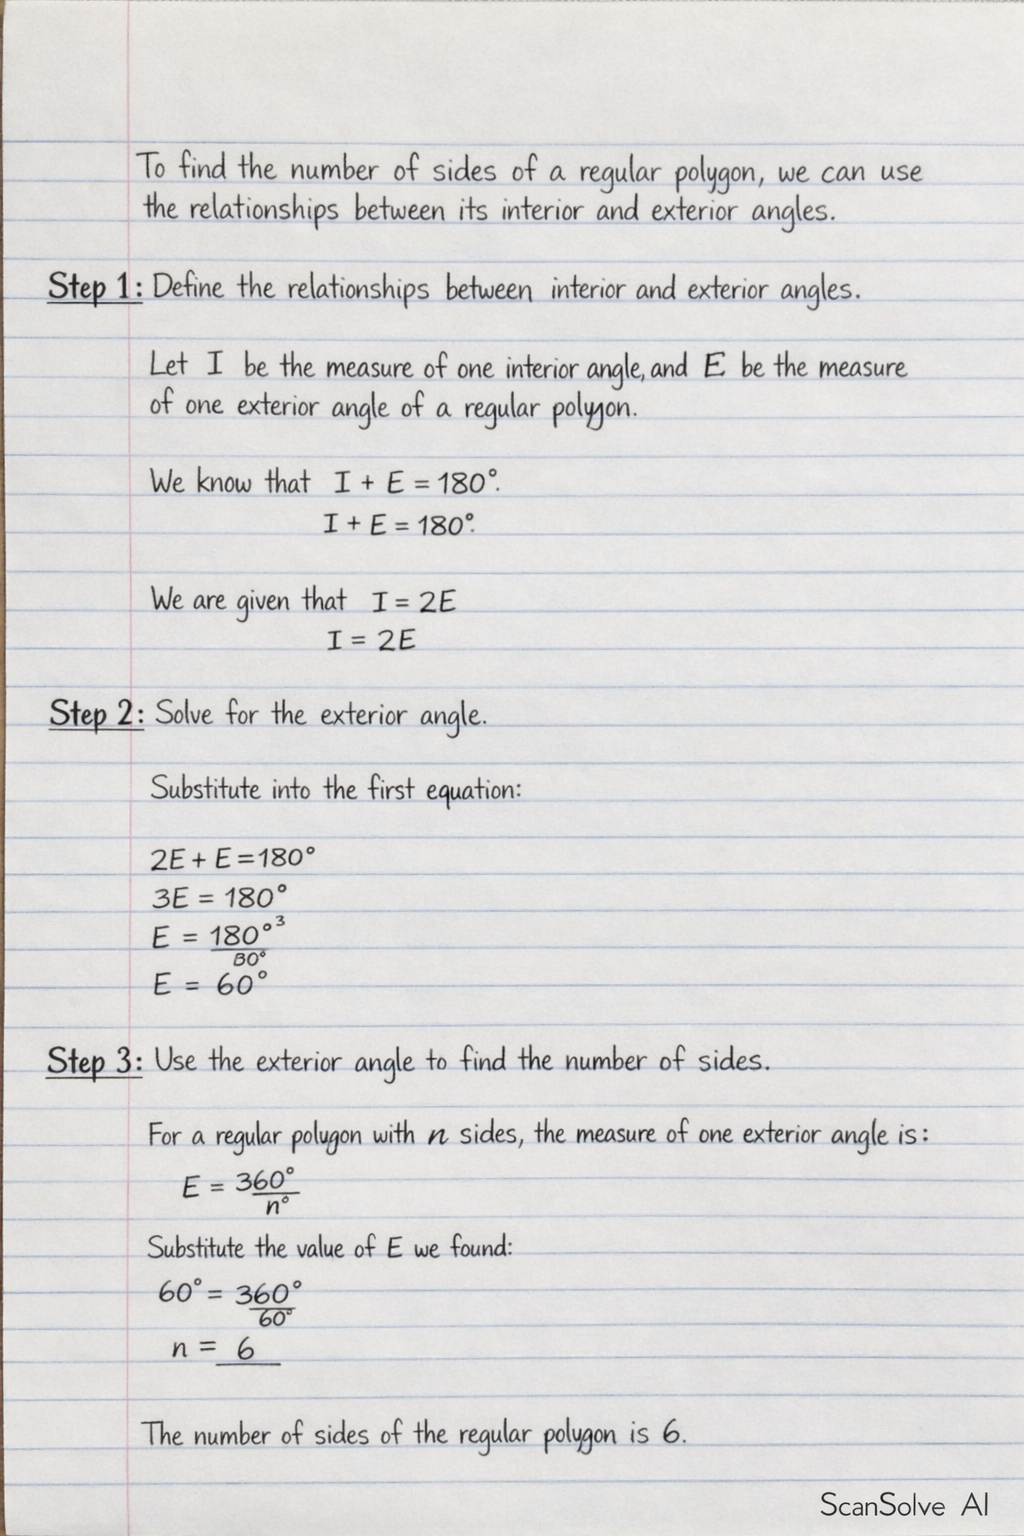 To find the number of sides of a regular polygon, we can use
the relationships between its interior and exterior angles.
Step 1: Define the relationships between interior and exterior angles.
Let I be the measure of one interior angle, and E be the measure
of one exterior angle of a regular polygon.
We know that I + E = 180°.
I + E = 180°.
We are given that I = 2E
I = 2E
Step 2: Solve for the exterior angle.
Substitute into the first equation:
2E + E = 180°
3E = 180°
E = 180°³
80°
E = 60°
Step 3: Use the exterior angle to find the number of sides.
For a regular polygon with n sides, the measure of one exterior angle is:
E = 360°
n°
Substitute the value of E we found:
60° = 360°
60°
n = 6
The number of sides of the regular polygon is 6.
ScanSolve AI